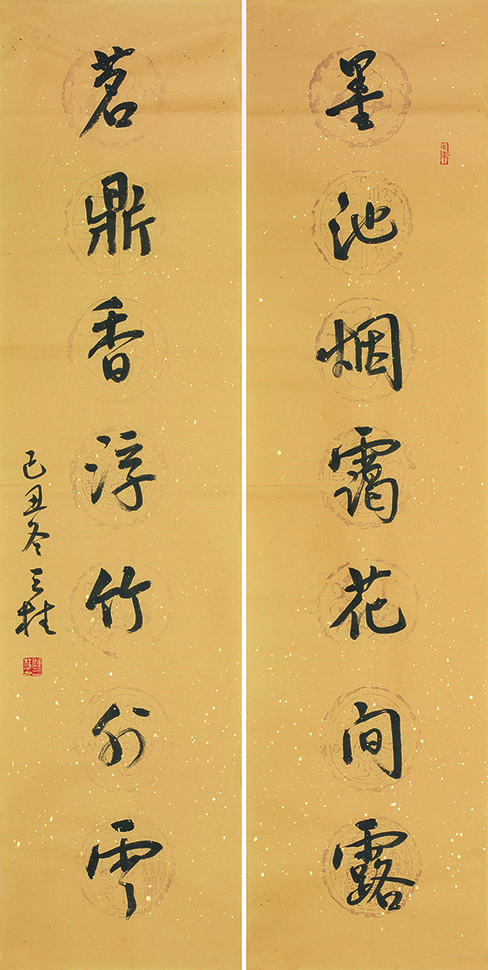 墨池烟霭花间露
茗鼎香浮竹外雲
己丑冬三桂